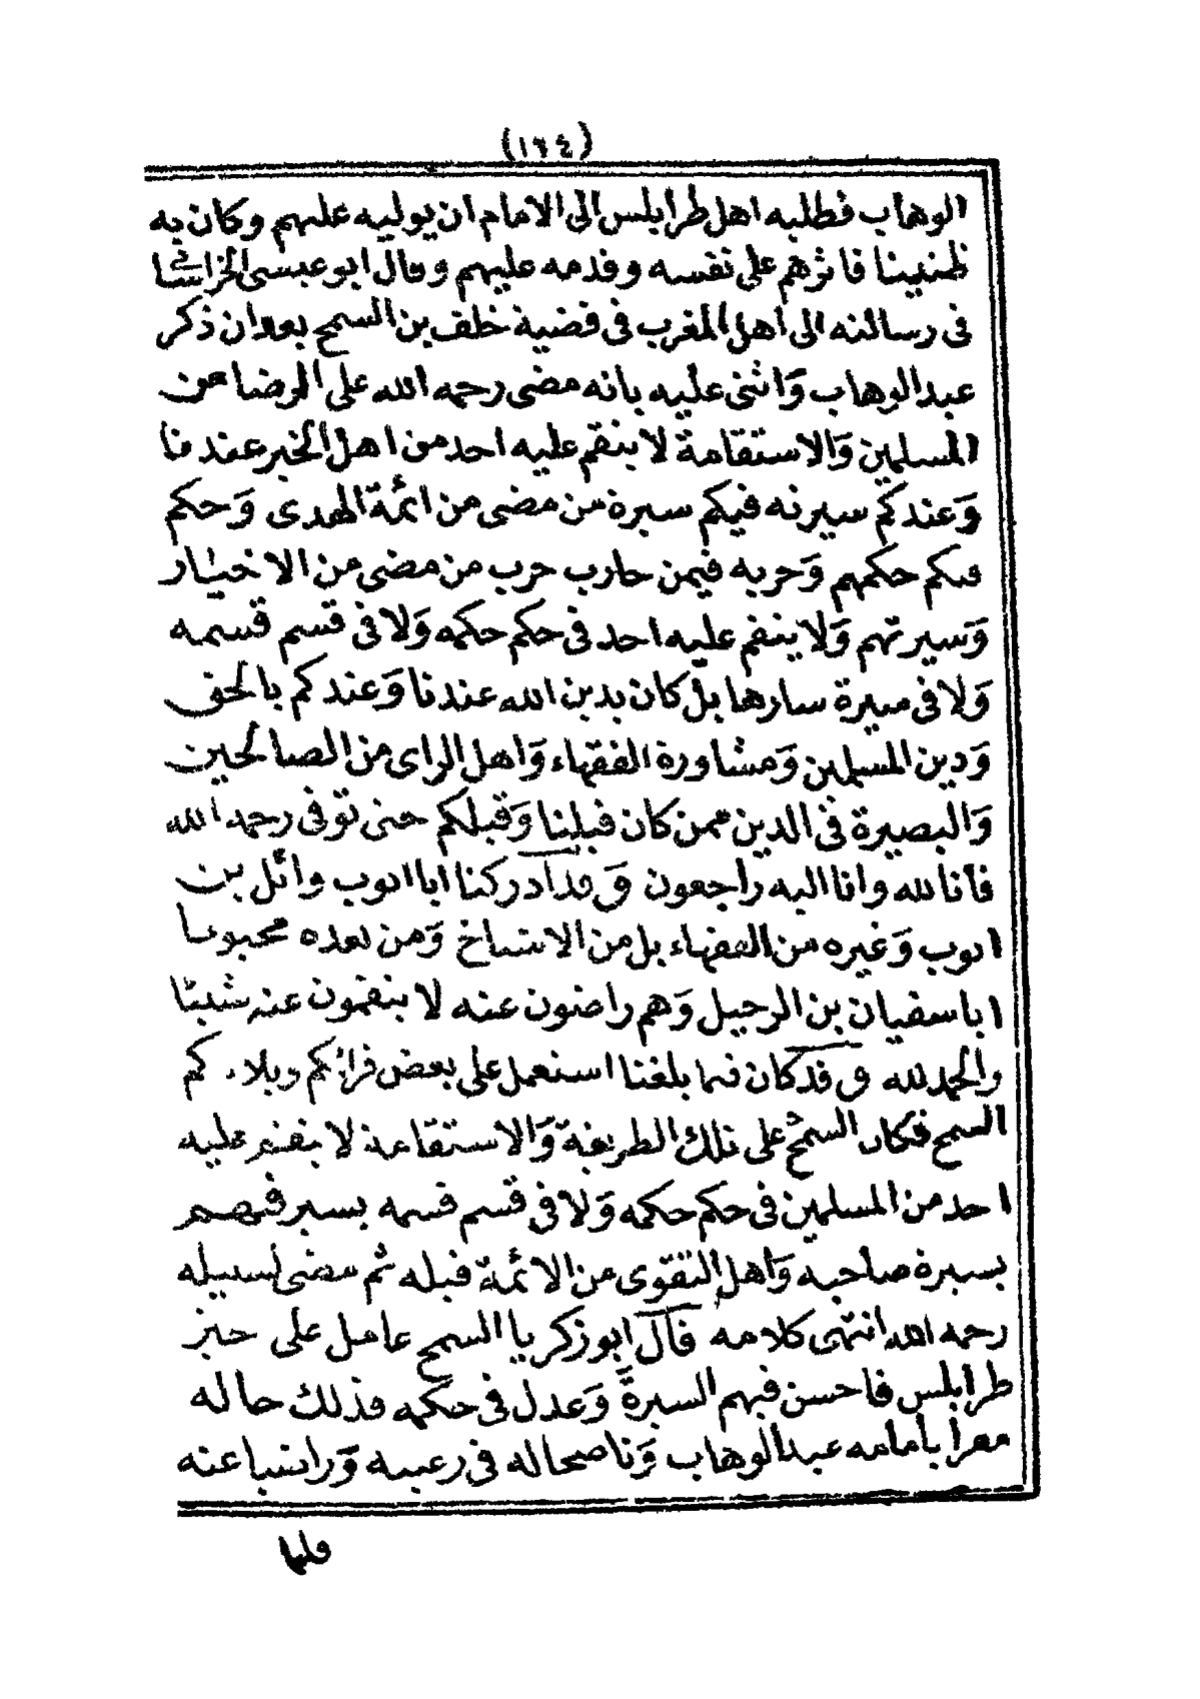 (١٦٤)
الوهاب فطلبه اهل طرابلس الى الامام ان يوليه عليهم وكان به
ظنينا فاثرهم على نفسه وقدمه عليهم وقال ابو عيسى الخراسانى
فى رسالته الى اهل المغرب فى قضية خلف بن السمح بعد ان ذكر
عبد الوهاب وَاثنى عليه بانه مضى رحمه الله على الرضا من
المسلمين وَالاستقامة لا ينقم عليه احد من اهل الخير عندنا
وَعندكم سيرته فيكم سيرة من مضى من ائمة الهدى وَحكم
فيكم حكمهم وَحربه فيمن حارب حرب من مضى من الاخيار
وَسيرتهم وَلا ينقم عليه احد فى حكم حكمه وَلا فى قسم قسمه
وَلا فى سيرة سارها بل كان يدين الله عندنا وَعندكم بالحق
وَدين المسلمين وَمشاورة الفقهاء وَاهل الراى من الصالحين
وَالبصيرة فى الدين ممن كان قبلنا وَقبلكم حتى توفى رحمه الله
فانا لله وانا اليه راجعون وَقد ادركنا ابا ايوب وائل بن
ايوب وَغيره من الفقهاء بل من الاشياخ وَمن بعده محبوبا
ابا سفيان بن الرحيل وَهم راضون عنه لا ينقمون عنه شيئا
والحمد لله وَقد كان فيما بلغنا استعمل على بعض قرائكم وبلادكم
السمح فكان السمح على تلك الطريقة وَالاستقامة لا ينقم عليه
احد من المسلمين فى حكم حكمه وَلا فى قسم قسمه يسير فيهم
بسيرة صاحبه وَاهل التقوى من الائمة قبله ثم مضى لسبيله
رحمه الله انتهى كلامه قال ابو زكريا السمح عامل على حيز
طرابلس فاحسن فيهم السيرةَ وَعدل فى حكمه وذلك حاله
مقرا بامامه عبد الوهاب وَناصحا له فى رعيته وَراضيا عنه
فلما